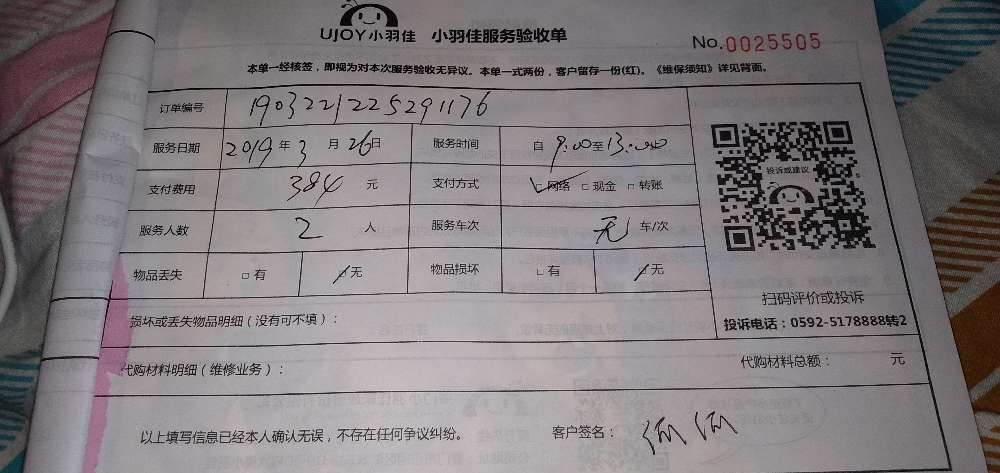 UJOY小羽佳 小羽佳服务验收单 No.0025505
本单一经核签，即视为对本次服务验收无异议。本单一式两份，客户留存一份(红)。《维保须知》详见背面。
订单编号 1903221225291176
服务日期 2019年3月26日 服务时间 自9:00至13:00
支付费用 384元 支付方式 □网络 □现金 □转账
投诉或建议
服务人数 2人 服务车次 无车/次
物品丢失 □有 □无 物品损坏 □有 □无
扫码评价或投诉
损坏或丢失物品明细（没有可不填）：
投诉电话：0592-5178888转2
代购材料明细（维修业务）： 代购材料总额： 元
以上填写信息已经本人确认无误，不存在任何争议纠纷。 客户签名：